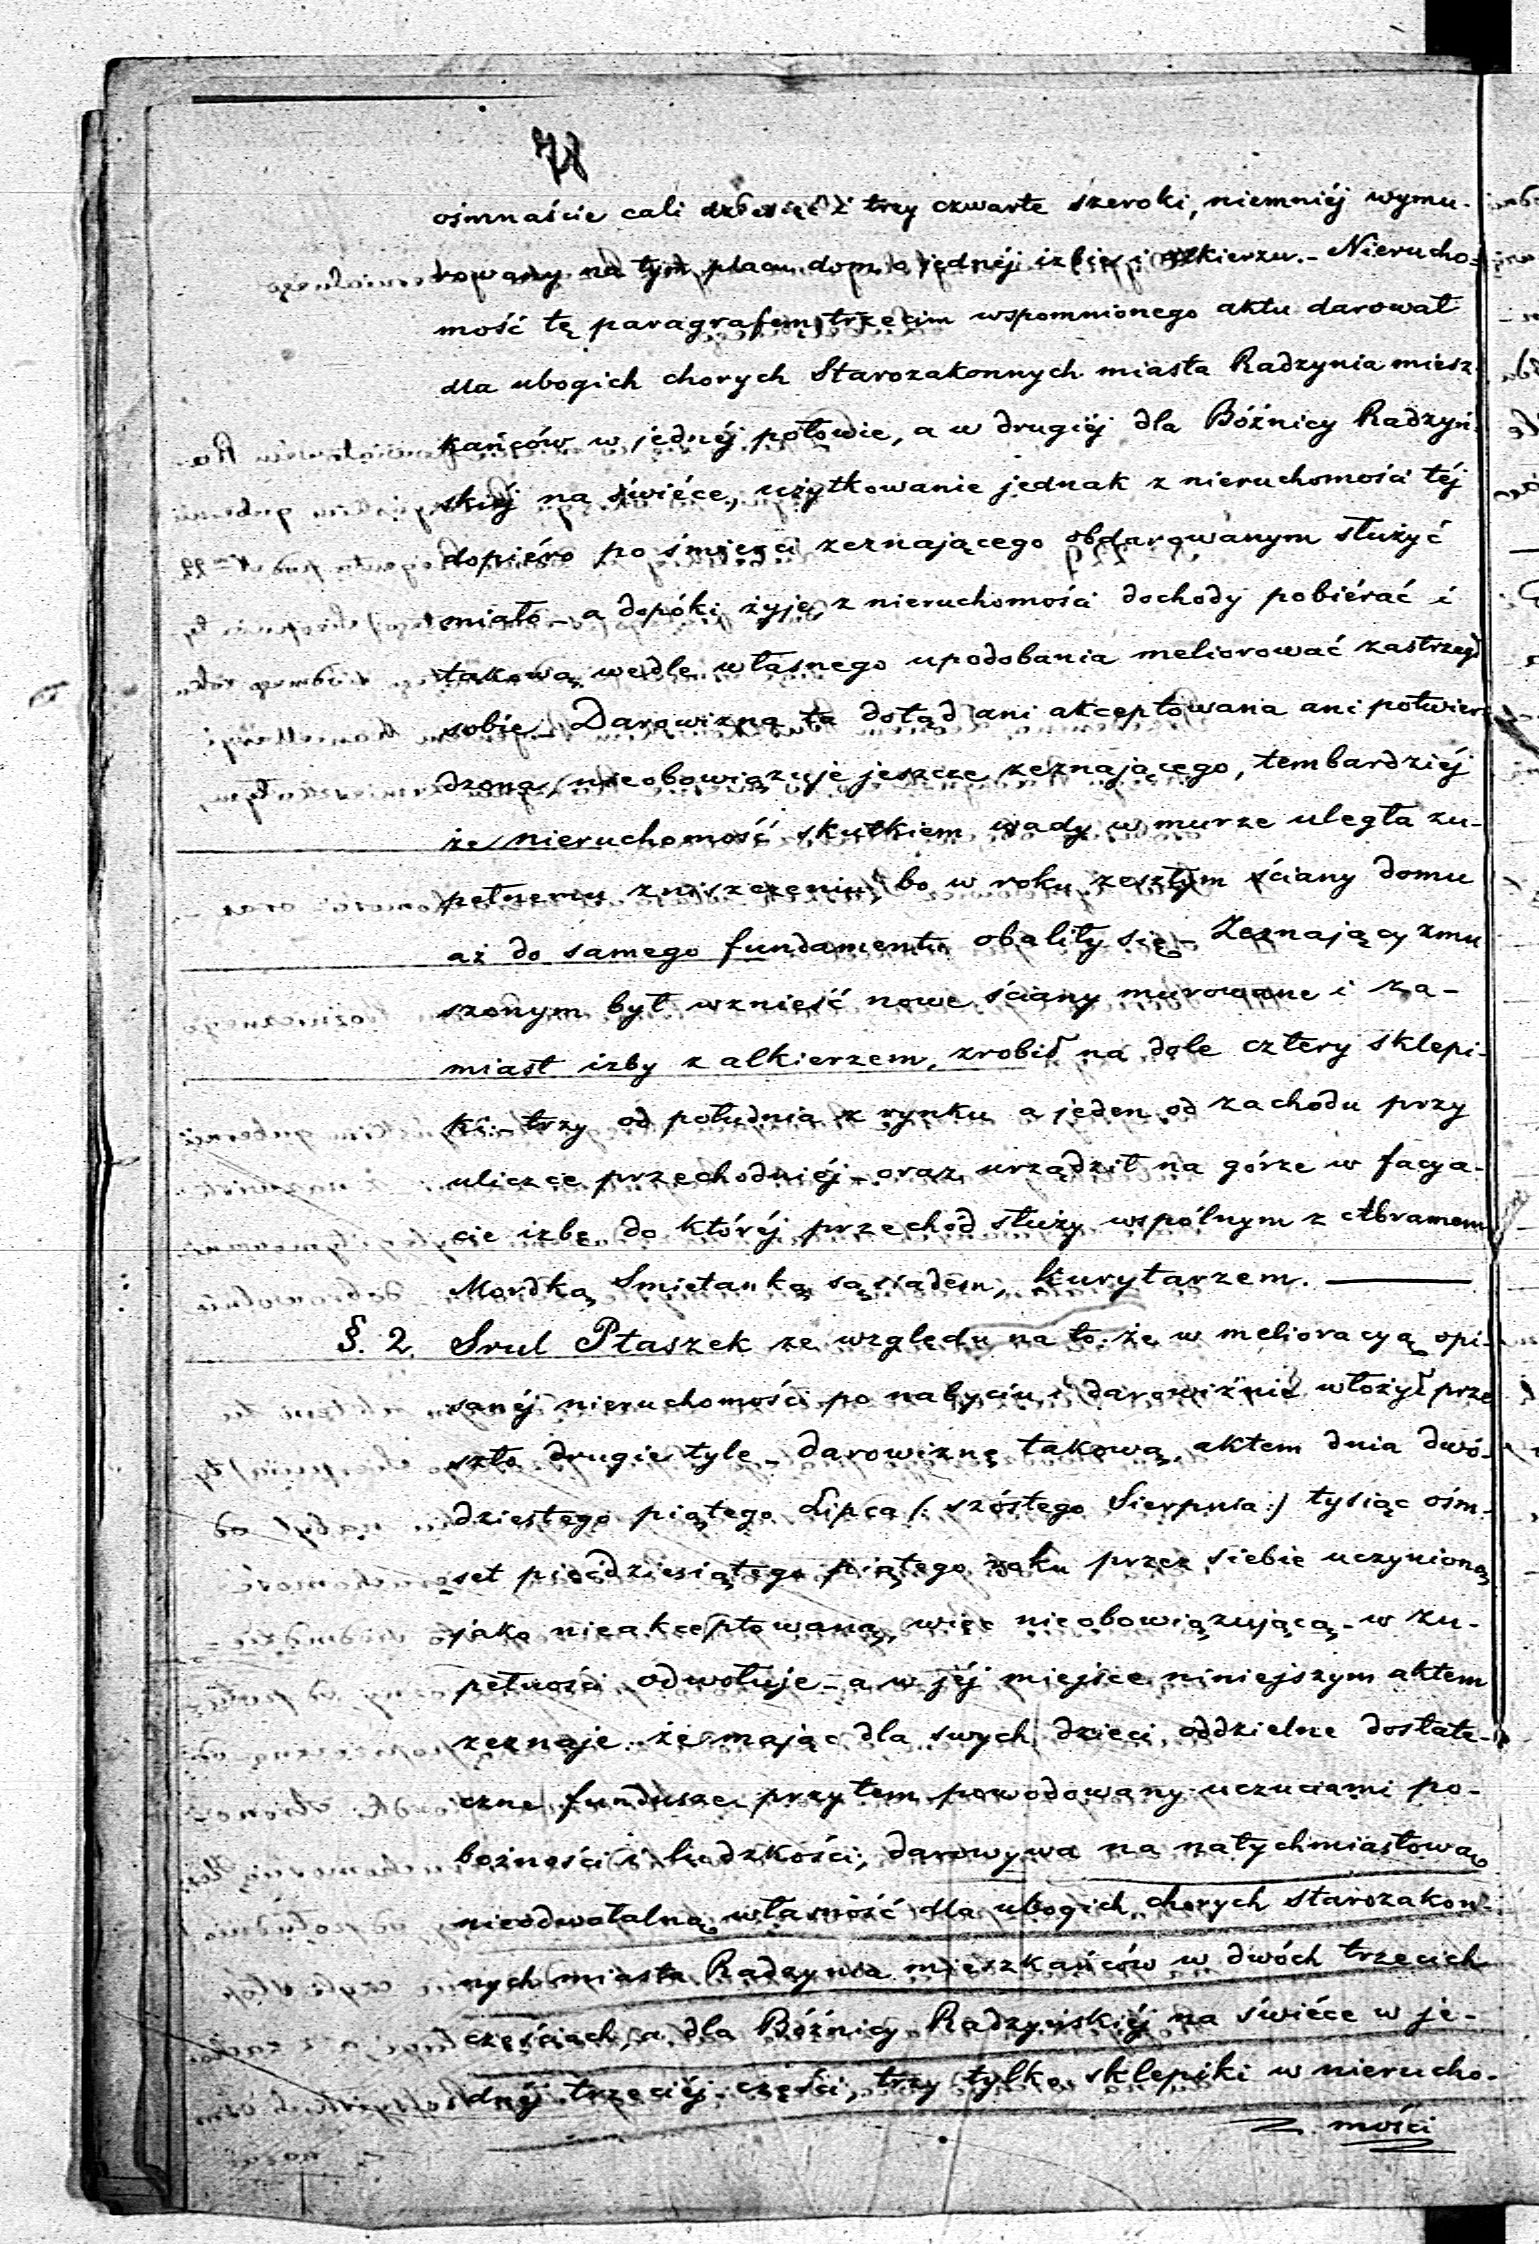 78
ośmnaście cali dziesięć i trzy czwarte szeroki, niemniéj wymu-
rowany na tym placu dom o jednéj izbie i alkierzu.- Nierucho-
mość tę paragrafem trzecim wspomnionego aktu darował
dla ubogich chorych Starozakonnych miasta Radzynia miesz-
kańców w jednéj połowie, a w drugiéj dla Bóźnicy Radzyń-
skiéj na świéce, użytkowanie jednak z nieruchomości téj
dopiéro po śmierci zeznającego obdarowanym służyć
miało - a dopóki żyje, z nieruchomości dochody pobiérać i
takową wedle własnego upodobania meliorować zastrzegł
sobie - Darowizna ta dotąd ani akceptowana ani potwier-
dzona, nieobowiązuje jeszcze zeznającego, tembardziéj
że nieruchomość skutkiem wady w murze uległa zu-
pełnemu zniszczeniu, bo w roku zeszłym ściany domu
aż do samego fundamentu obaliły się - Zeznający zmu
szonym był wznieść nowe ściany murowane i za-
miast izby z alkierzem, zrobił na dole cztery sklepi-
ki - trzy od południa z rynku a jeden od zachodu przy
uliczce przechodniéj - oraz urządził na górze w facya-
cie izbę do któréj przechód służy wspólnym z Abramem
Mordką Smietanką sąsiadem, kurytarzem. ———
§. 2. Srul Ptaszek ze względu na to że w melioracyą opi-
sanéj nieruchomości po nabyciu i darowiźnie włożył prze
szło drugie tyle - darowiznę takową aktem dnia dwó-
dziestego piątego Lipca /: szóstego Sierpnia :/ tysiąc ośm-
set pięćdziesiątego piątego roku przez siebie uczynioną
jako nieakceptowaną, więc nieobowiązującą - w zu-
pełności odwołuje - a w jéj miejsce niniejszym aktem
zeznaje że mając dla swych dzieci oddzielne dostate-
czne fundusze przytem powodowany uczuciami po-
bożności i ludzkości, darowywa na natychmiastową
nieodwołalną własność dla ubogich chorych starozakon-
nych miasta Radzynia mieszkańców w dwóch trzecich
częściach, a dla Bóźnicy Radzyńskiéj na świéce w je-
dnéj trzeciéj części, trzy tylko sklepiki w nierucho-
mości